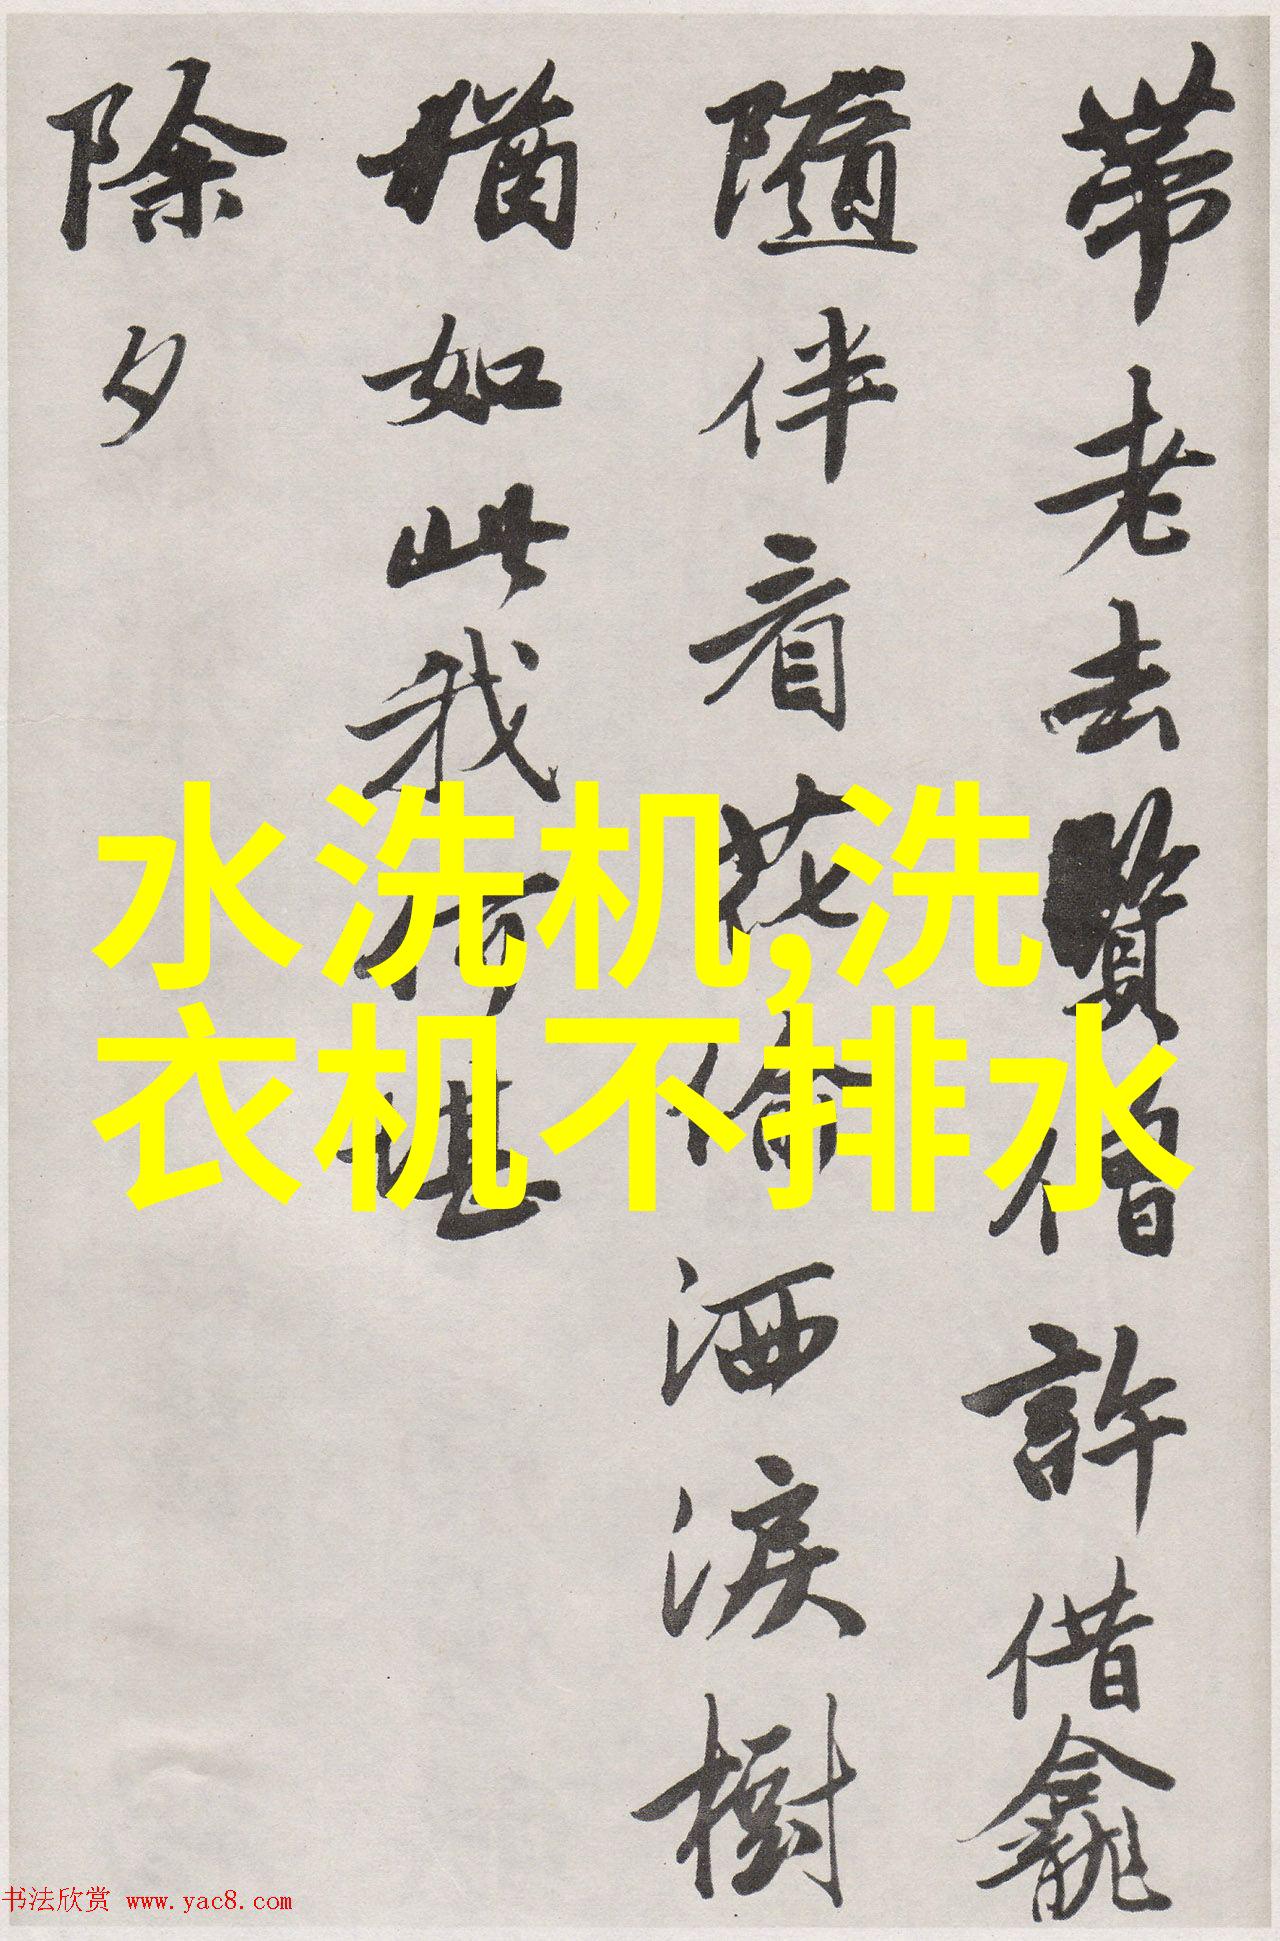 带老去贤僧許借龕
隨伴看花偷洒淚樹
猶如此我何堪
除夕
水洗机,洗
衣机不排水
书法欣赏 www.yac8.com